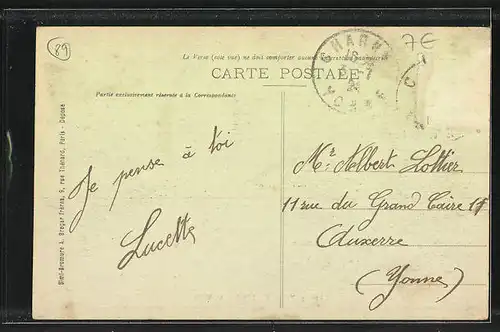 89
7€
Le Verso (coté vue) ne doit comporter aucune
CARTE POSTALE
Partie exclusivement réservée à la Correspondance
CHARNY
YONNE
Je pense à toi
Lucette
Mr Albert Lottier
11 rue du Grand Caire 11
Auxerre
(Yonne)
Simi-Bromure A. Breger Frères, 9, rue Thénard, Paris - Déposé